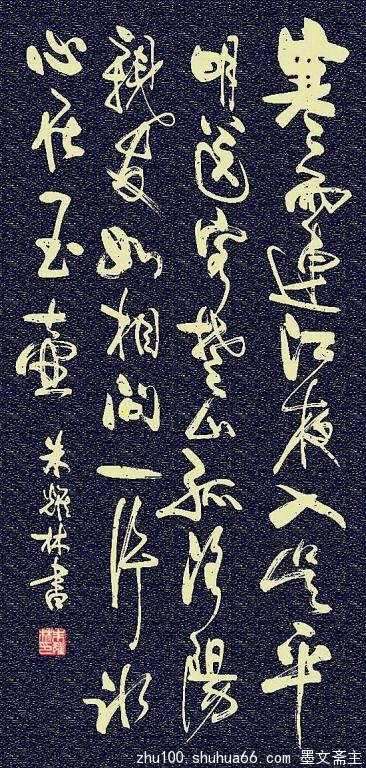 寒雨連江夜入吴平
明送客楚山孤洛陽
親友如相問一片冰
心在玉壺
朱耀林書
zhu100.shuhua66.com©墨文斋主